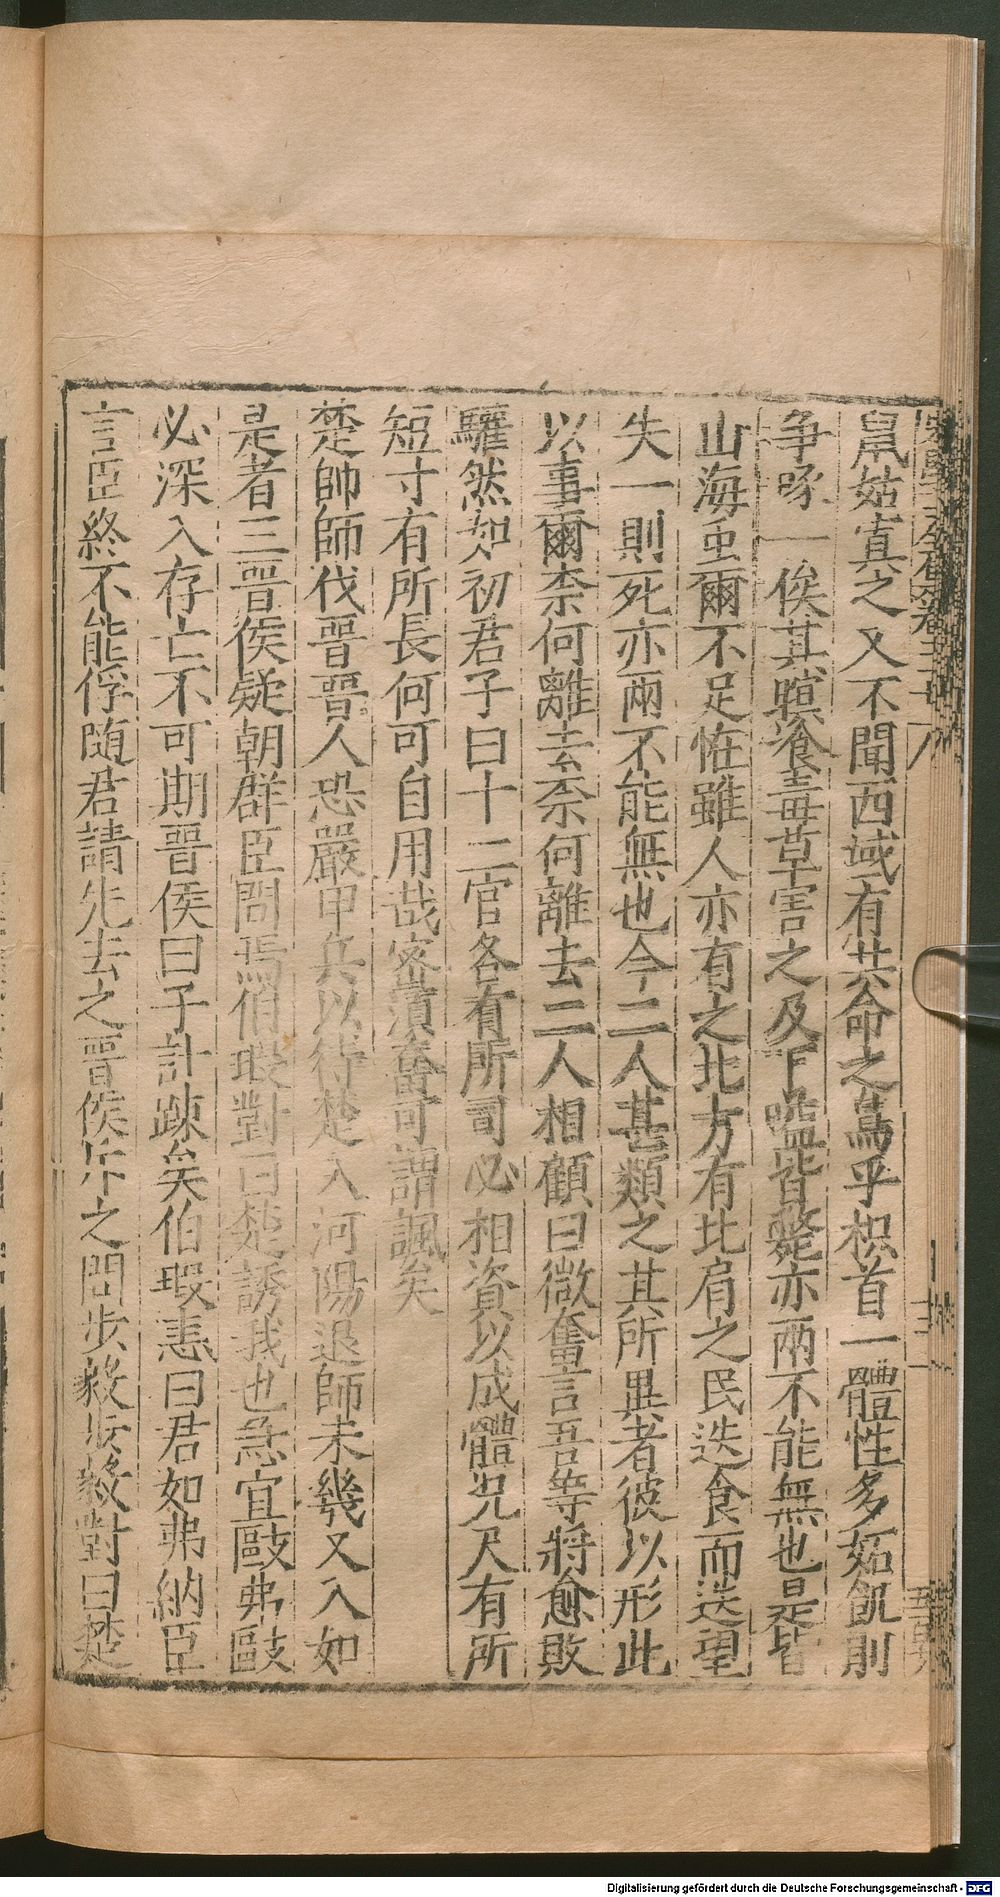 鼠姑寘之又不聞西域有共命之鳥乎枳首一體性多妬飢則
争啄一俟其瞑飡毒草害之及下嗌皆斃亦兩不能無也是皆
山海虫爾不足恠雖人亦有之北方有比肩之民迭食而迭望
失一則死亦兩不能無也今二人甚類之其所異者彼以形此
以事爾柰何離去柰何離去二人相顧曰微奮言吾等將愈敗
驩然如初君子曰十二官各有所司必相資以成體況尺有所
短寸有所長何可自用哉宻瀆奮可謂諷矣
楚帥師伐晉晉人恐嚴甲兵以待楚入河陽退師未幾又入如
是者三晉侯疑朝群臣問焉伯瑕對曰楚誘我也急宜毆弗毆
必深入存亡不可期晉侯曰子計疎矣伯瑕恚曰君如弗納臣
言臣終不能俘隨君請先去之晉侯斥之問步毅步毅對曰楚
Digitalisierung gefördert durch die Deutsche Forschungsgemeinschaft - DFG